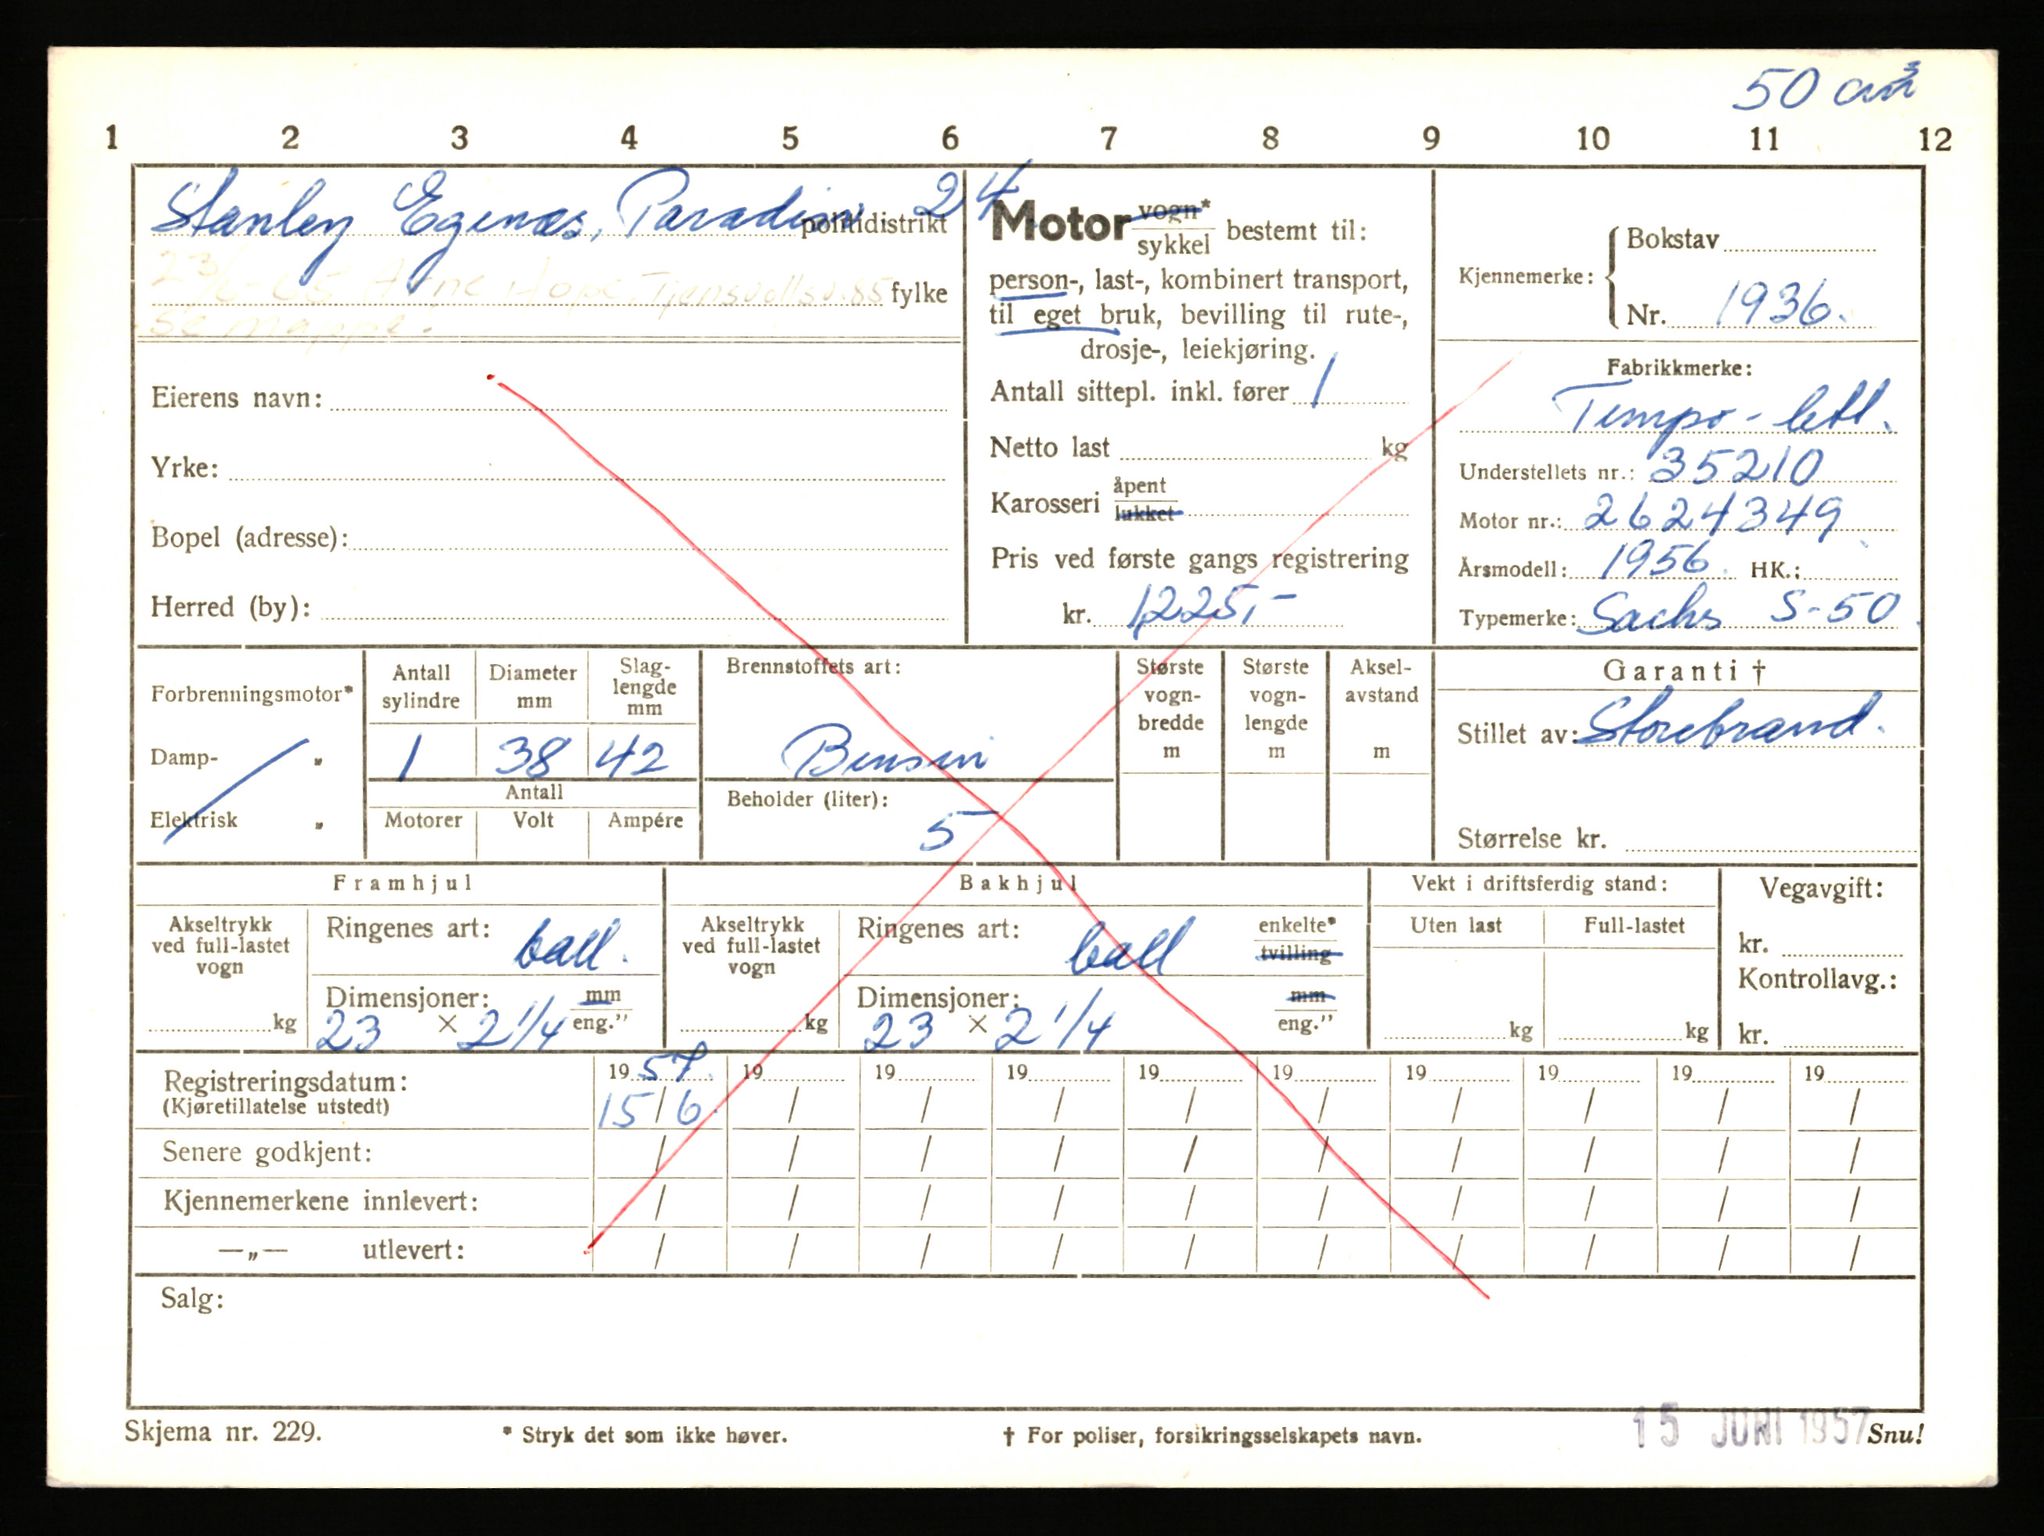 50 cm³
1 2 3 4 5 6 7 8 9 10 11 12
Stanley Egenæs, Paradisv 24
politidistrikt
23/6-65 Arne Hope, Tjensvollsv. 85 fylke
Se mappe.
Eierens navn:
Yrke:
Bopel (adresse):
Herred (by):
Motor vogn* / sykkel bestemt til:
person-, last-, kombinert transport,
til eget bruk, bevilling til rute-,
drosje-, leiekjøring.
Antall sittepl. inkl. fører 1
Netto last kg
Karosseri åpent / lukket
Pris ved første gangs registrering
kr. 1225,-
Kjennemerke: Bokstav
Nr. 1936.
Fabrikkmerke:
Tempo - lett.
Understellets nr.: 35210
Motor nr.: 2624349
Årsmodell: 1956. HK.:
Typemerke: Sachs S-50
Forbrenningsmotor*
Damp- „
Elektrisk „
Antall sylindre
Diameter mm
Slag-lengde mm
1 38 42
Antall
Motorer Volt Ampére
Brennstoffets art:
Bensin
Beholder (liter):
5
Største vogn-bredde m
Største vogn-lengde m
Aksel-avstand m
Garanti †
Stillet av: Storebrand.
Størrelse kr.
Framhjul
Akseltrykk ved full-lastet vogn
kg
Ringenes art: ball.
Dimensjoner: mm / eng."
23 × 2 1/4
Bakhjul
Akseltrykk ved full-lastet vogn
kg
Ringenes art: ball
enkelte* / tvilling
Dimensjoner: mm / eng."
23 × 2 1/4
Vekt i driftsferdig stand:
Uten last Full-lastet
kg kg
Vegavgift:
kr.
Kontrollavg.:
kr.
Registreringsdatum: 1957. 19 19 19 19 19 19 19 19 19
(Kjøretillatelse utstedt) 15/6. / / / / / / / / /
Senere godkjent: / / / / / / / / / /
Kjennemerkene innlevert: / / / / / / / / / /
—„— utlevert: / / / / / / / / / /
Salg:
Skjema nr. 229.
* Stryk det som ikke høver.
† For poliser, forsikringsselskapets navn.
15 JUNI 1957
Snu!